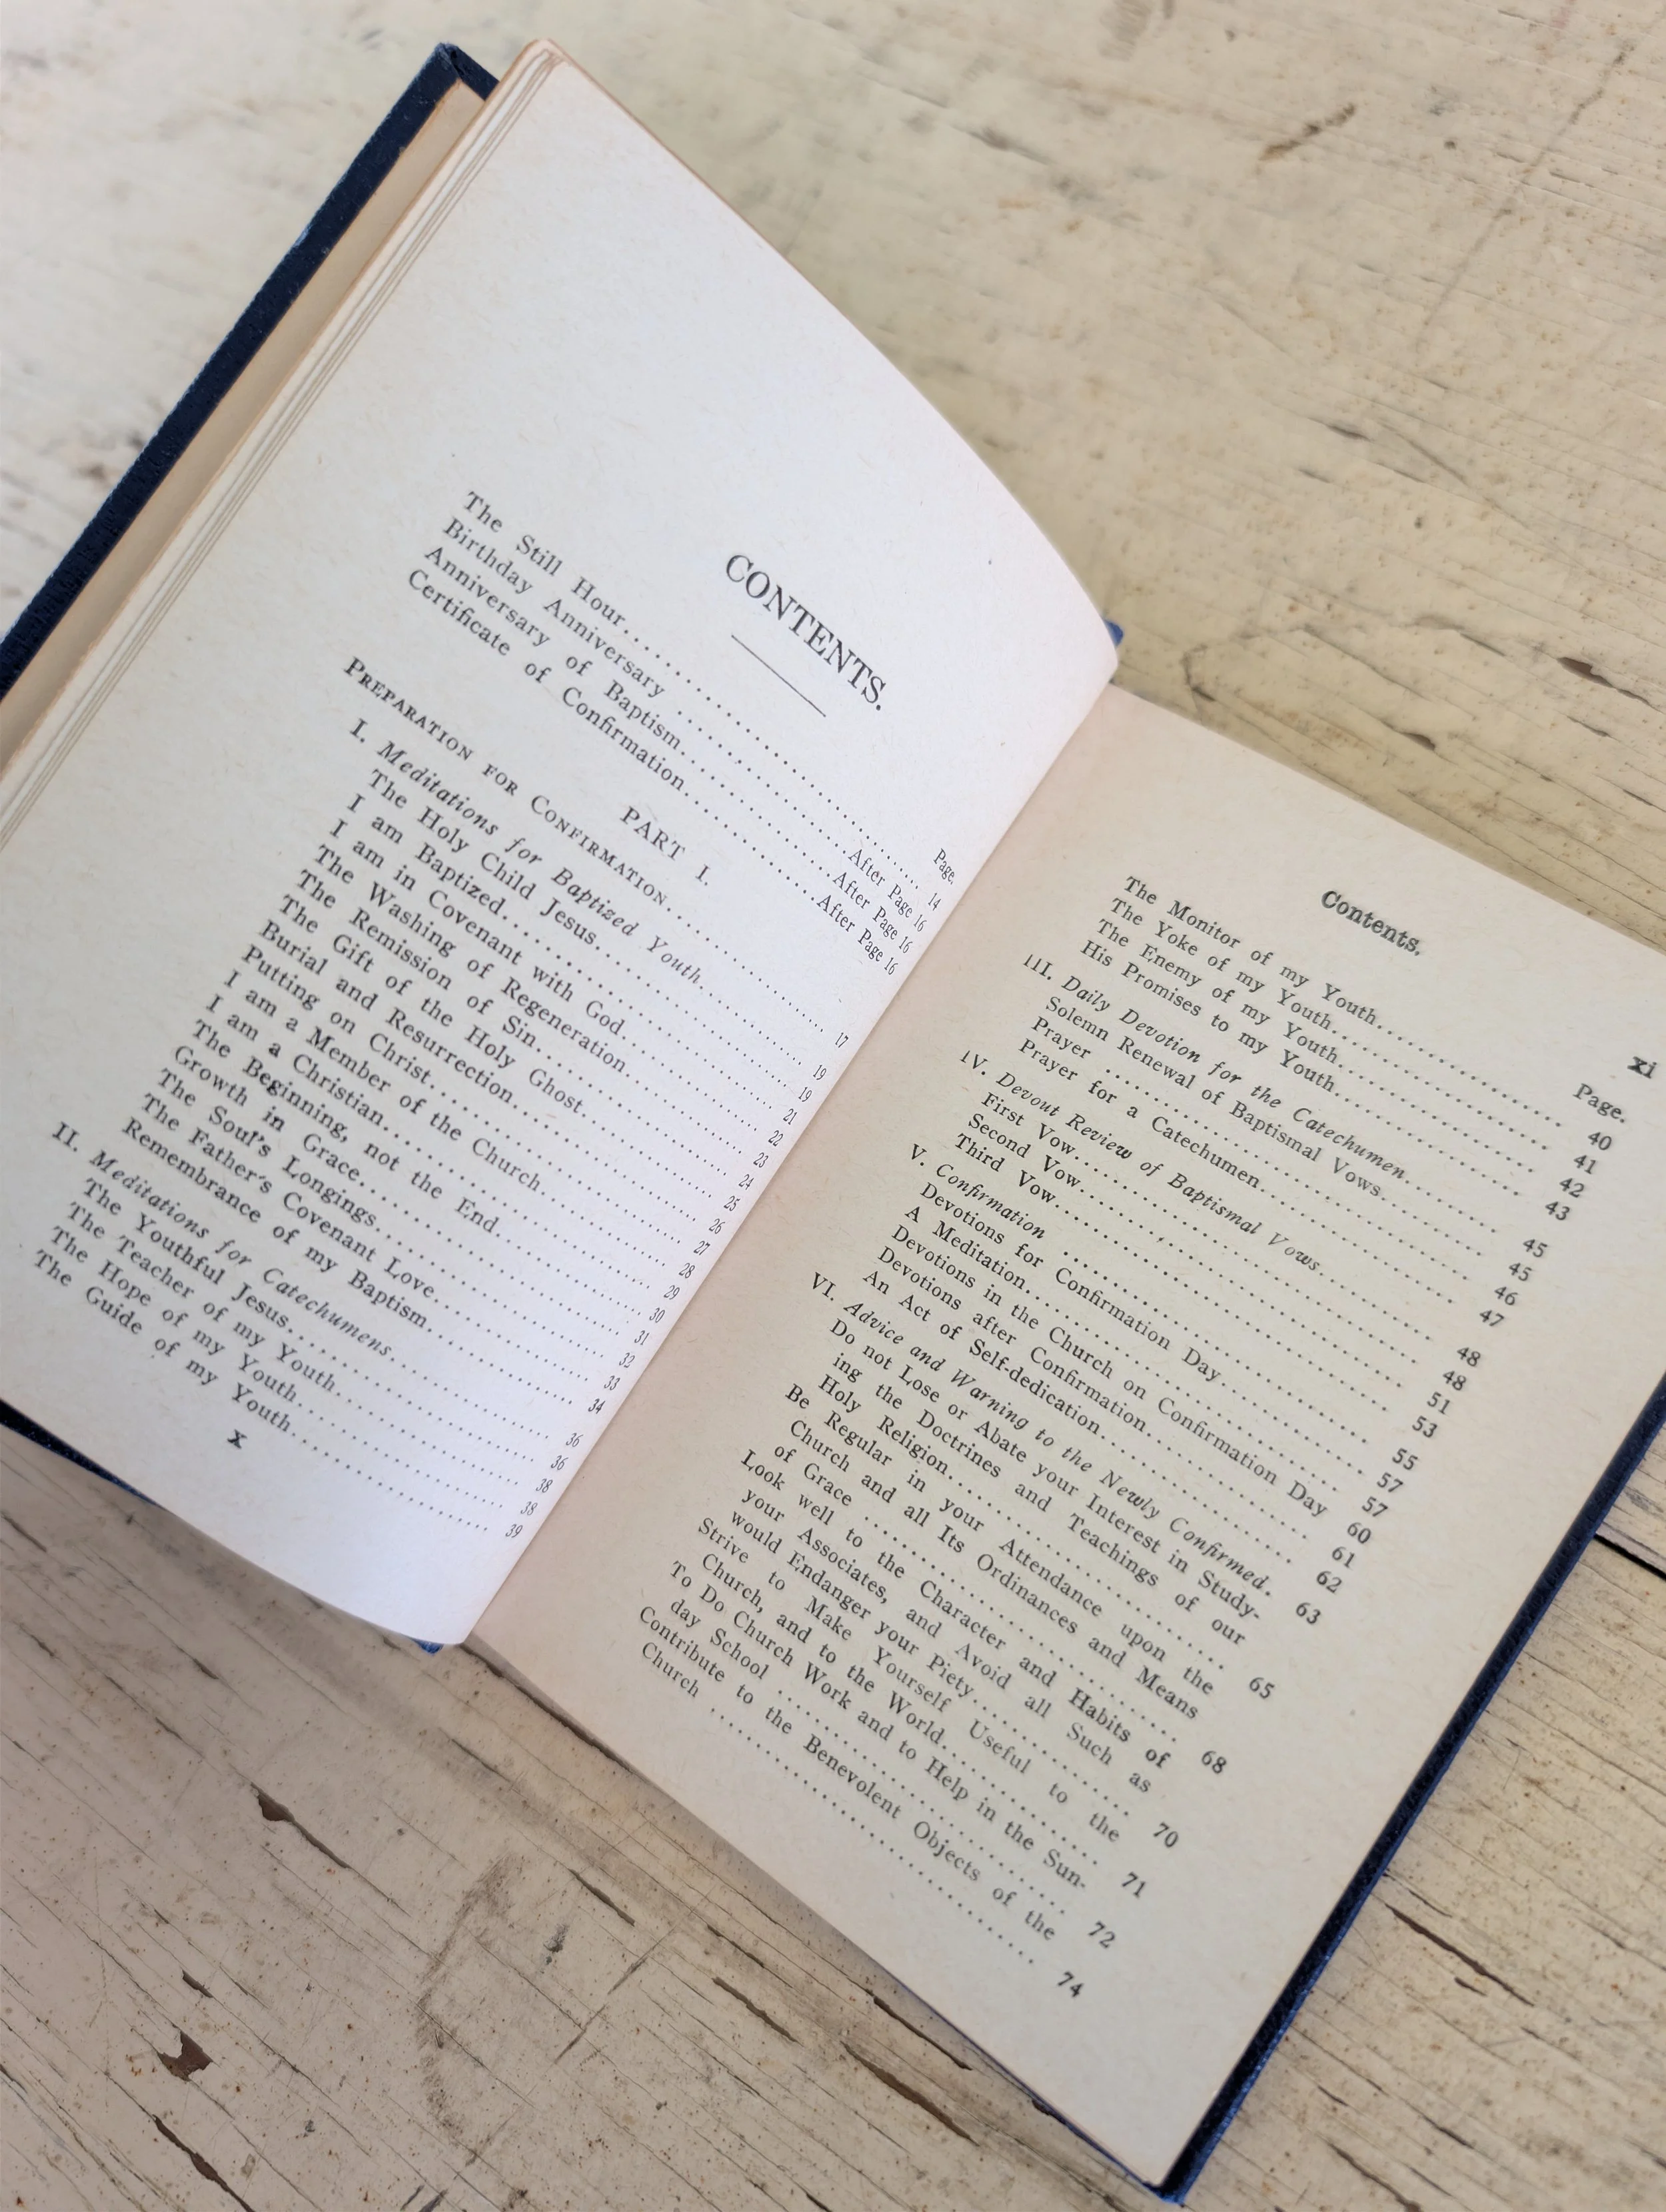 CONTENTS.
Page.
The Still Hour.............................. 14
Birthday Anniversary ....................After Page 16
Anniversary of Baptism...................After Page 16
Certificate of Confirmation..............After Page 16
PART I.
PREPARATION FOR CONFIRMATION.................... 17
I. Meditations for Baptized Youth............... 19
The Holy Child Jesus........................ 19
I am Baptized............................... 21
I am in Covenant with God................... 22
The Washing of Regeneration................. 23
The Remission of Sin........................ 24
The Gift of the Holy Ghost.................. 25
Burial and Resurrection..................... 26
Putting on Christ........................... 27
I am a Member of the Church................. 28
I am a Christian............................ 29
The Beginning, not the End.................. 30
Growth in Grace............................. 31
The Soul's Longings......................... 32
The Father's Covenant Love.................. 33
Remembrance of my Baptism................... 34
II. Meditations for Catechumens................. 36
The Youthful Jesus.......................... 36
The Teacher of my Youth..................... 38
The Hope of my Youth........................ 38
The Guide of my Youth....................... 39
x
Contents. xi
Page.
The Monitor of my Youth..................... 40
The Yoke of my Youth........................ 41
The Enemy of my Youth....................... 42
His Promises to my Youth.................... 43
III. Daily Devotion for the Catechumen.......... 45
Solemn Renewal of Baptismal Vows............ 45
Prayer ..................................... 46
Prayer for a Catechumen..................... 47
IV. Devout Review of Baptismal Vows............. 48
First Vow................................... 48
Second Vow.................................. 51
Third Vow................................... 53
V. Confirmation ................................ 55
Devotions for Confirmation Day.............. 57
A Meditation................................ 57
Devotions in the Church on Confirmation Day 60
Devotions after Confirmation................ 61
An Act of Self-dedication................... 62
VI. Advice and Warning to the Newly Confirmed. 63
Do not Lose or Abate your Interest in Study-
ing the Doctrines and Teachings of our
Holy Religion............................... 65
Be Regular in your Attendance upon the
Church and all Its Ordinances and Means
of Grace ................................... 68
Look well to the Character and Habits of
your Associates, and Avoid all Such as
would Endanger your Piety................... 70
Strive to Make Yourself Useful to the
Church, and to the World.................... 71
To Do Church Work and to Help in the Sun-
day School ................................. 72
Contribute to the Benevolent Objects of the
Church ..................................... 74